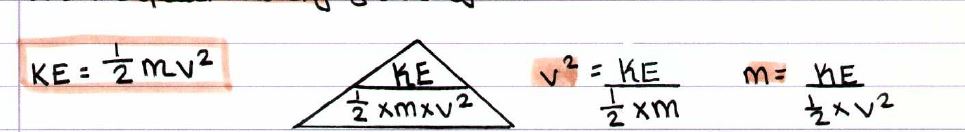 KE = 1/2 mv²
KE
1/2 × m × v²
v² = KE / 1/2 × m
m = KE / 1/2 × v²